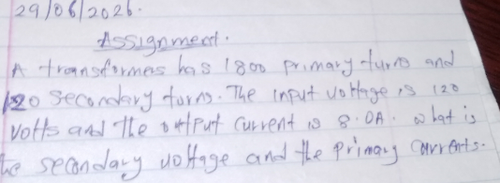 29/06/2026.
Assignment.
A transformer has 1800 primary turns and
120 secondary turns. The input voltage is 120
volts and the output current is 8.0A. what is
the secondary voltage and the primary currents.